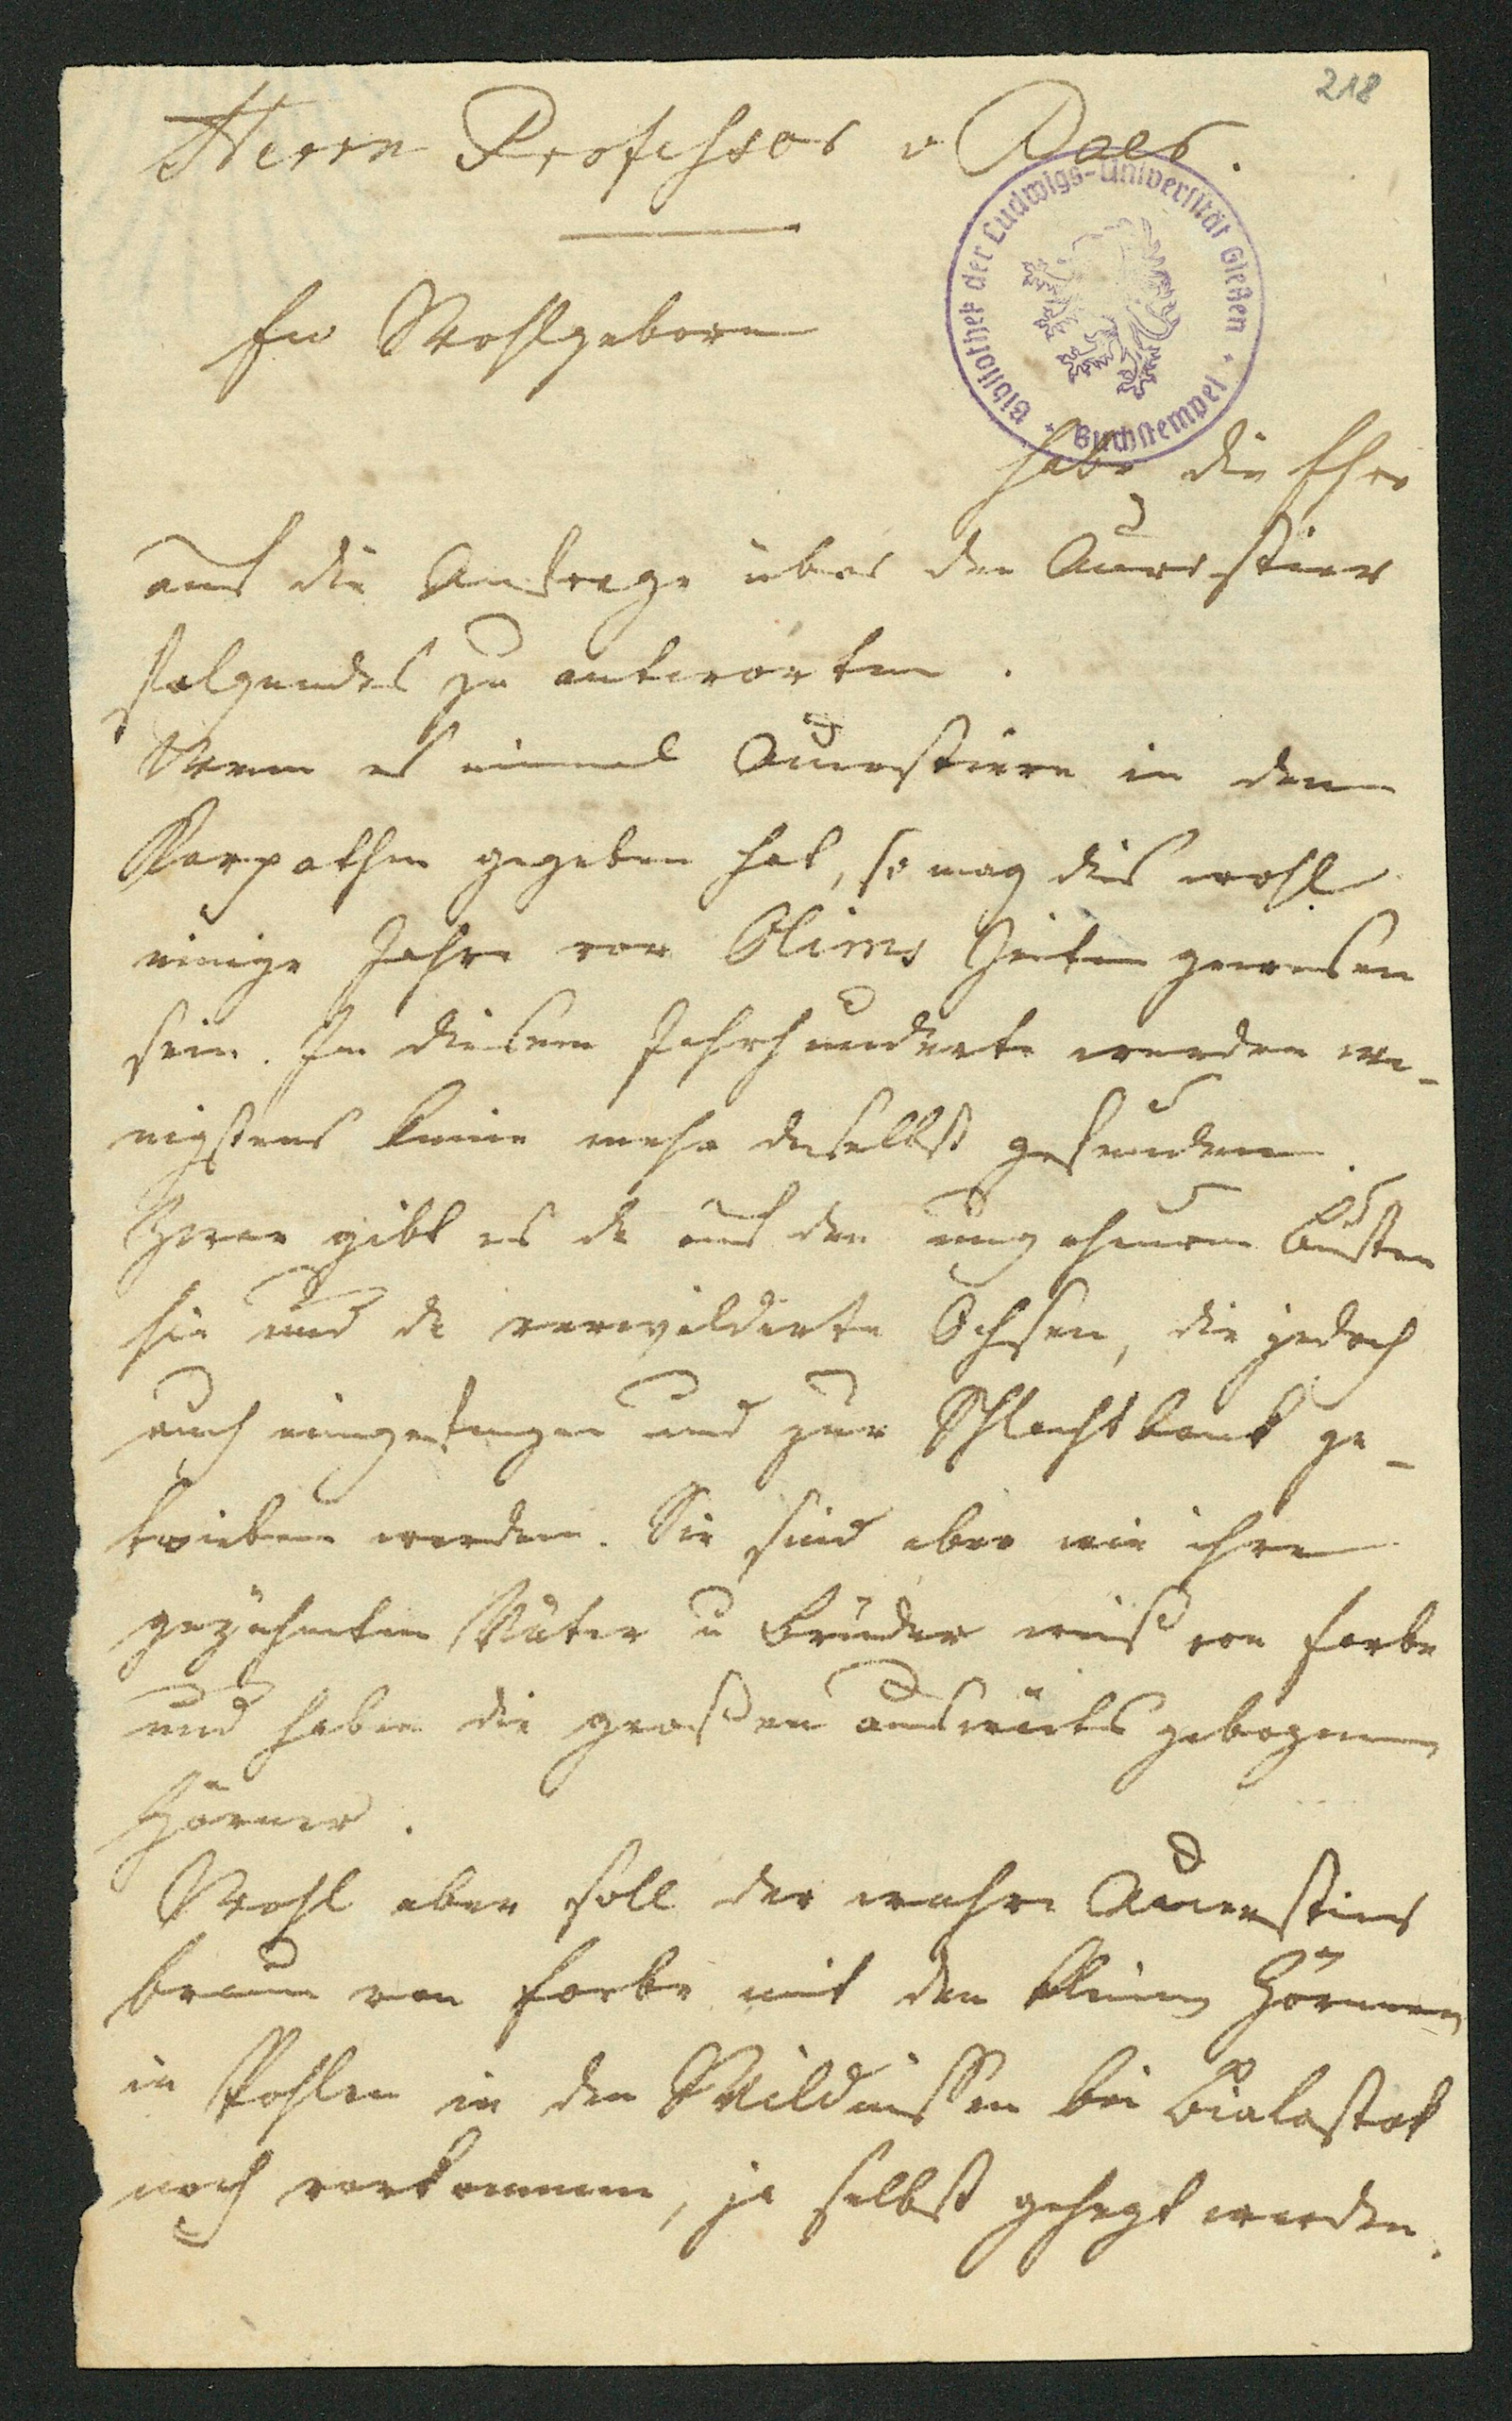 218
Herrn Professor v Baer.
Bibliothek der Ludwigs-Universität Gießen * Buchstempel *
Ew Wohlgeborn
habe die Ehre
auf die Anfrage über den Auerstier
folgendes zu antworten.
Wenn es einmal Auerstiere in den
Karpathen gegeben hat, so mag dies wohl
einige Jahre vor Olims Zeiten gewesen
sein. In diesem Jahrhunderte werden we-
nigstens keine mehr daselbst gefunden.
Zwar gibt es da auf den ungeheuren
hie und da verwilderte Ochsen, die jedoch
auch eingefangen und zur Schlachtbank ge-
trieben werden. Sie sind aber wie ihre
gezähmten Väter u Brüder weiß von Farbe
und haben die großen auswärts gebogenen
Hörner.
Wohl aber soll der wahre Auerstier
braun von Farbe mit den kleinen Hörnern
in Pohlen in den Wildnissen bei Bialastok
noch vorkommen, ja selbst gehegt werden.